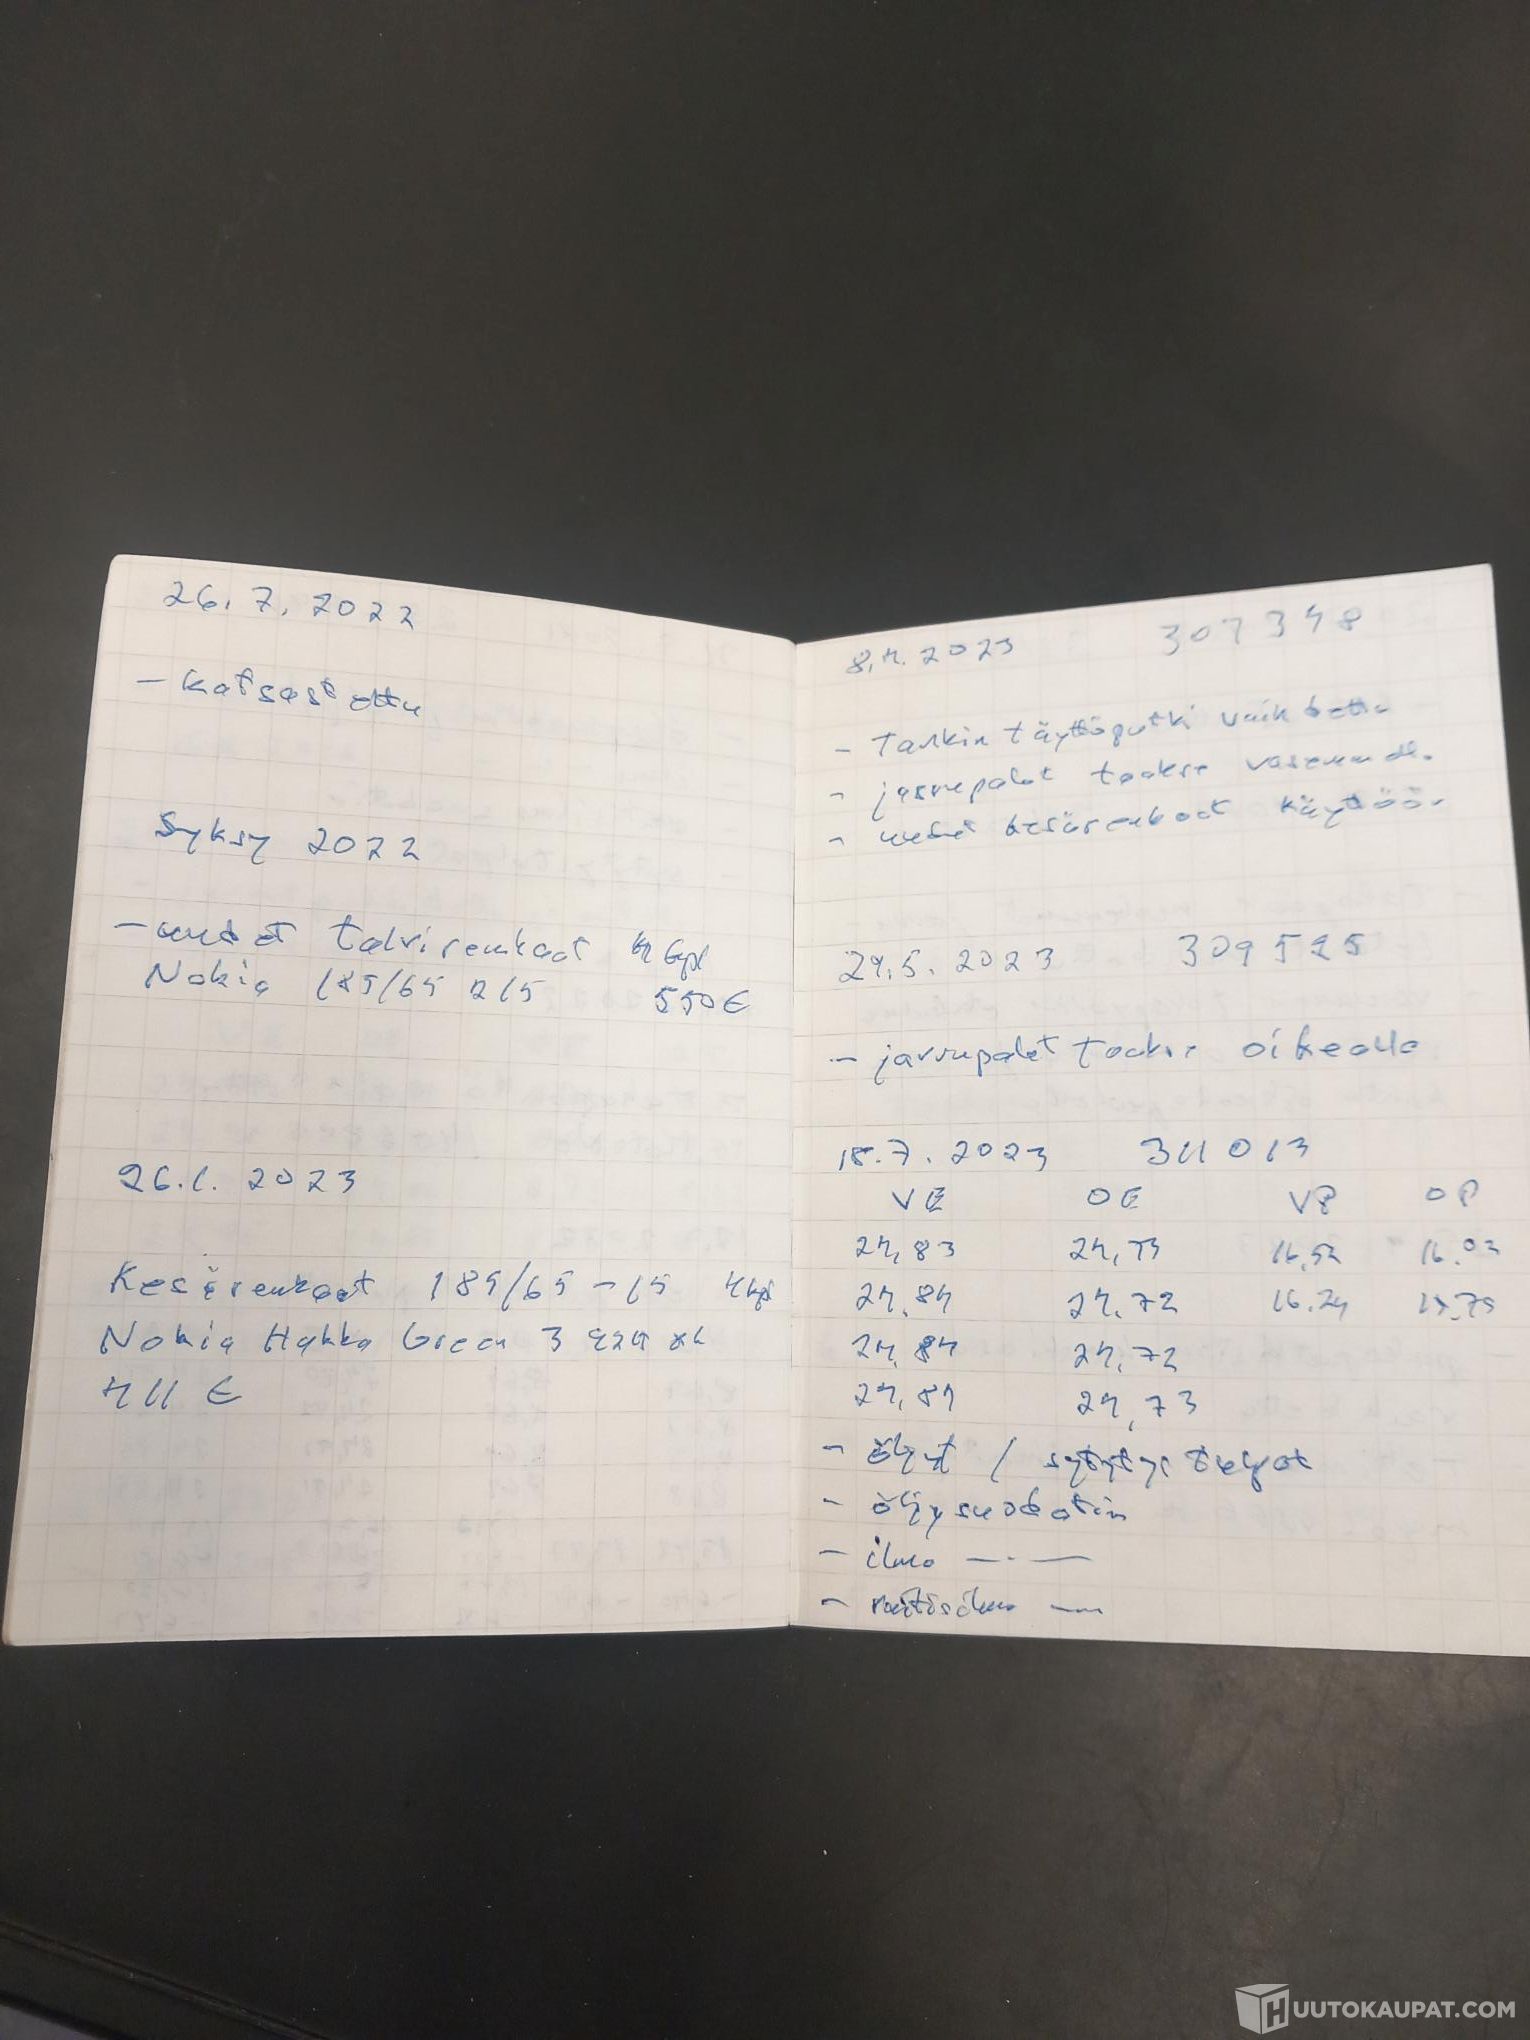 26.7.2022
- Katsastettu
Syksy 2022
- uudet talvirenkaat 4 kpl
Nokia 185/65 R15 550€
26.1.2023
Kesärenkaat 185/65-15 4 kpl
Nokia Hakka Green 3 92H XL
411 €
8.4.2023 307348
- Tankin täyttöputki vaihdettu
- jarrupalat taakse vasemmalle
- uudet kesärenkaat käyttöön
24.5.2023 309525
- jarrupalat taakse oikealle
18.7.2023 311013
VE OE VP OP
24,83 24,73 16,52 16.02
24,84 24,72 16.24 15,75
24,84 24,72
24,84 24,73
- öljyt / sytytystulpat
- öljysuodatin
- ilma —·—
- raitisilma —
HUUTOKAUPAT.COM